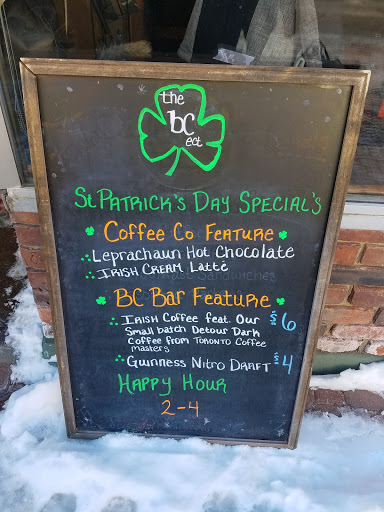 the
bc
ect
St PATRICK'S DAY SPECIAL'S
COFFEE CO FEATURE
LEPRACHAUN HOT CHOCOLATE
IRISH CREAM LATTE
BC BAR FEATURE
IRISH COFFEE FEAT. OUR $6
SMALL BATCH DETOUR DARK
COFFEE FROM TORONTO COFFEE
MASTERS
GUINNESS NITRO DARFT $4
HAPPY HOUR
2-4